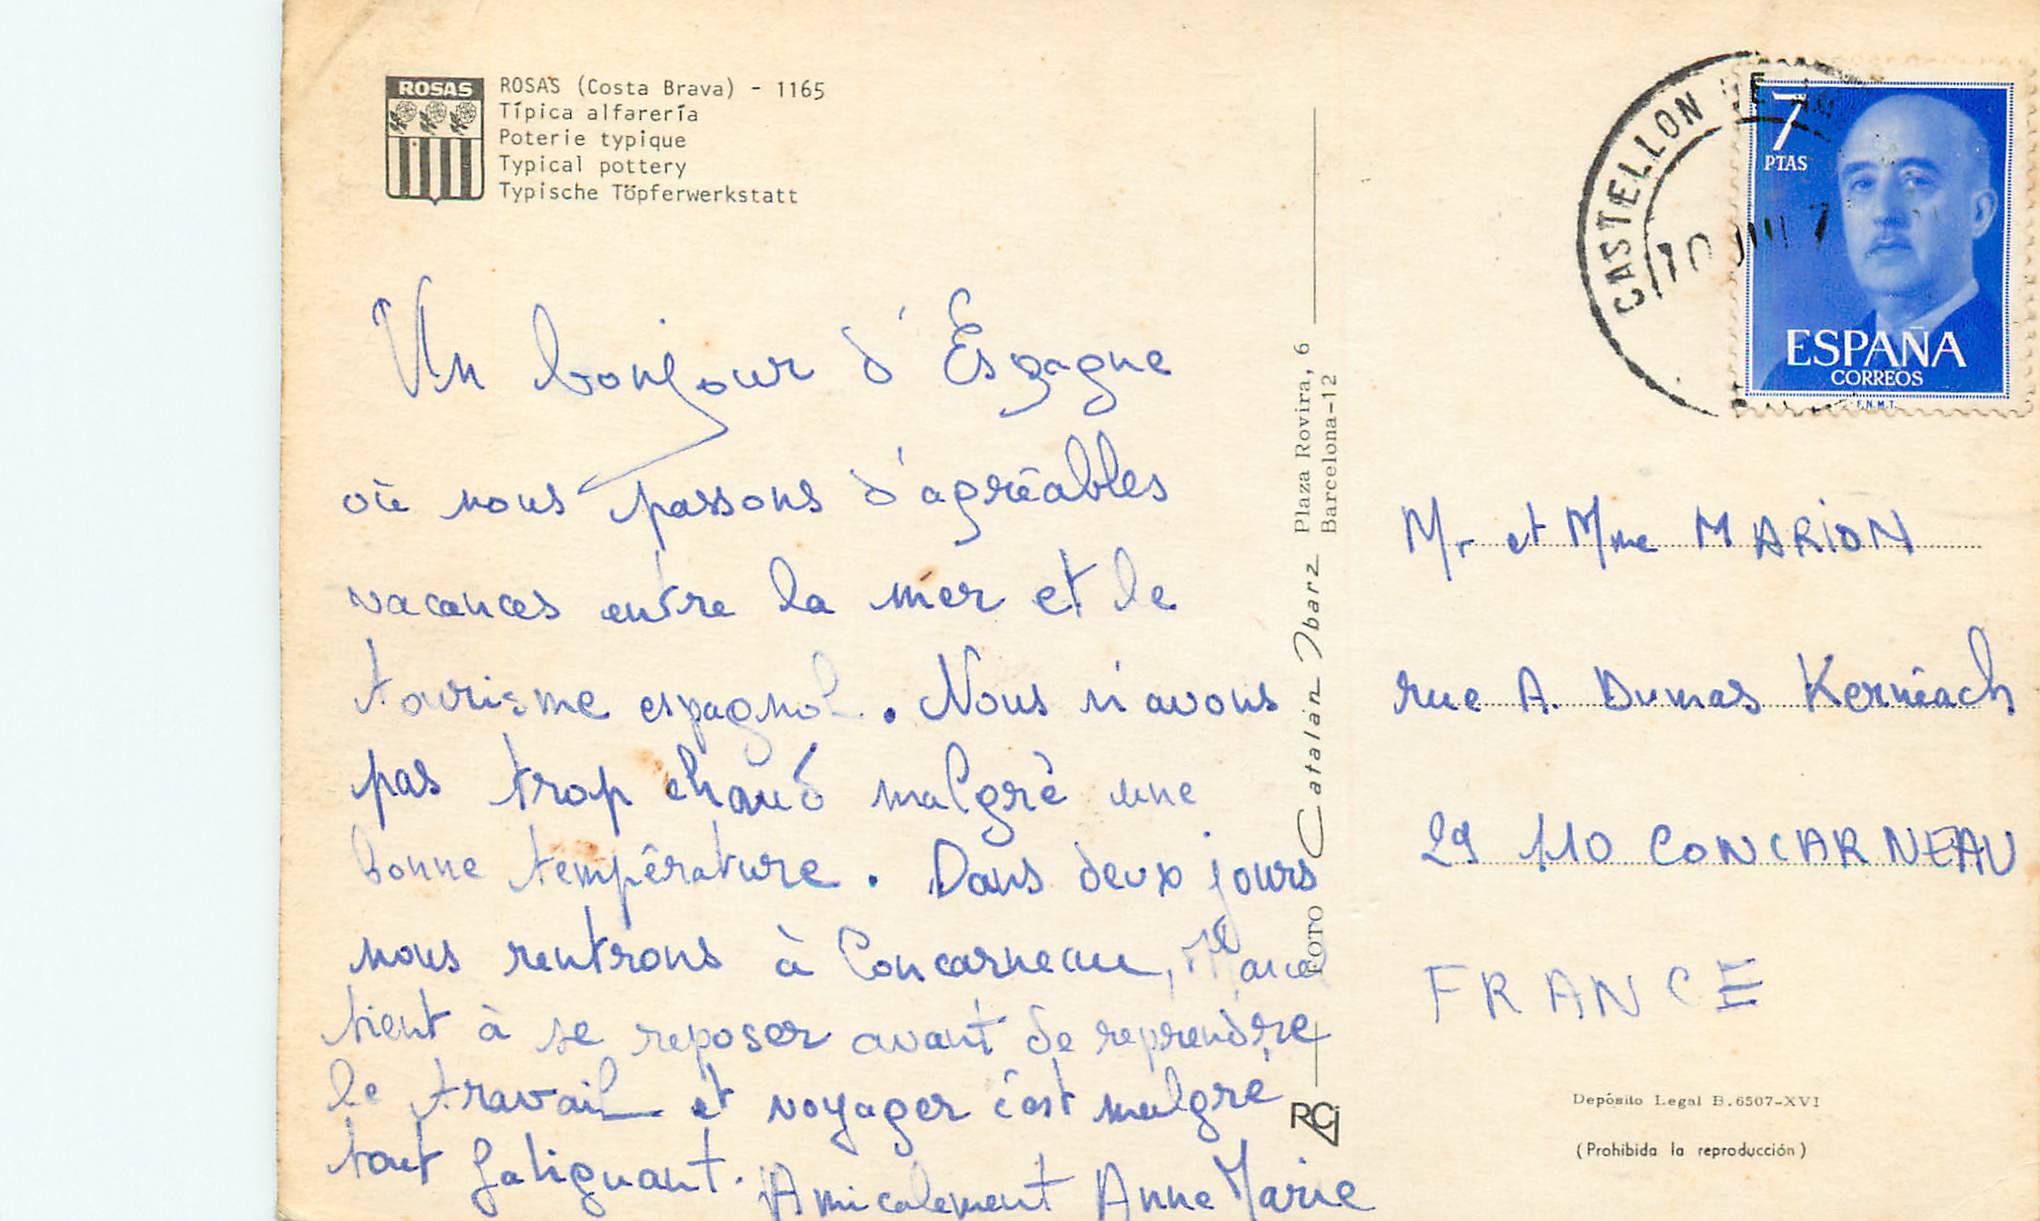 ROSAS
ROSAS (Costa Brava) - 1165
Típica alfarería
Poterie typique
Typical pottery
Typische Töpferwerkstatt
Un bonjour d'Espagne
où nous passons d'agréables
vacances entre la mer et le
tourisme espagnol. Nous n'avons
pas trop chaud malgré une
bonne température. Dans deux jours
nous rentrons à Concarneau, Marcel
tient à se reposer avant de reprendre
le travail et voyager c'est malgré
tout fatiguant. Amicalement Anne Marie
FOTO Catalán Ibarz Plaza Rovira, 6
Barcelona-12
RCj
CASTELLON DE
10
7
PTAS
ESPAÑA
CORREOS
F.N.M.T.
Mr et Mme MARION
rue A. Dumas Kernéach
29 110 CONCARNEAU
FRANCE
Depósito Legal B.6507-XVI
(Prohibida la reproducción)